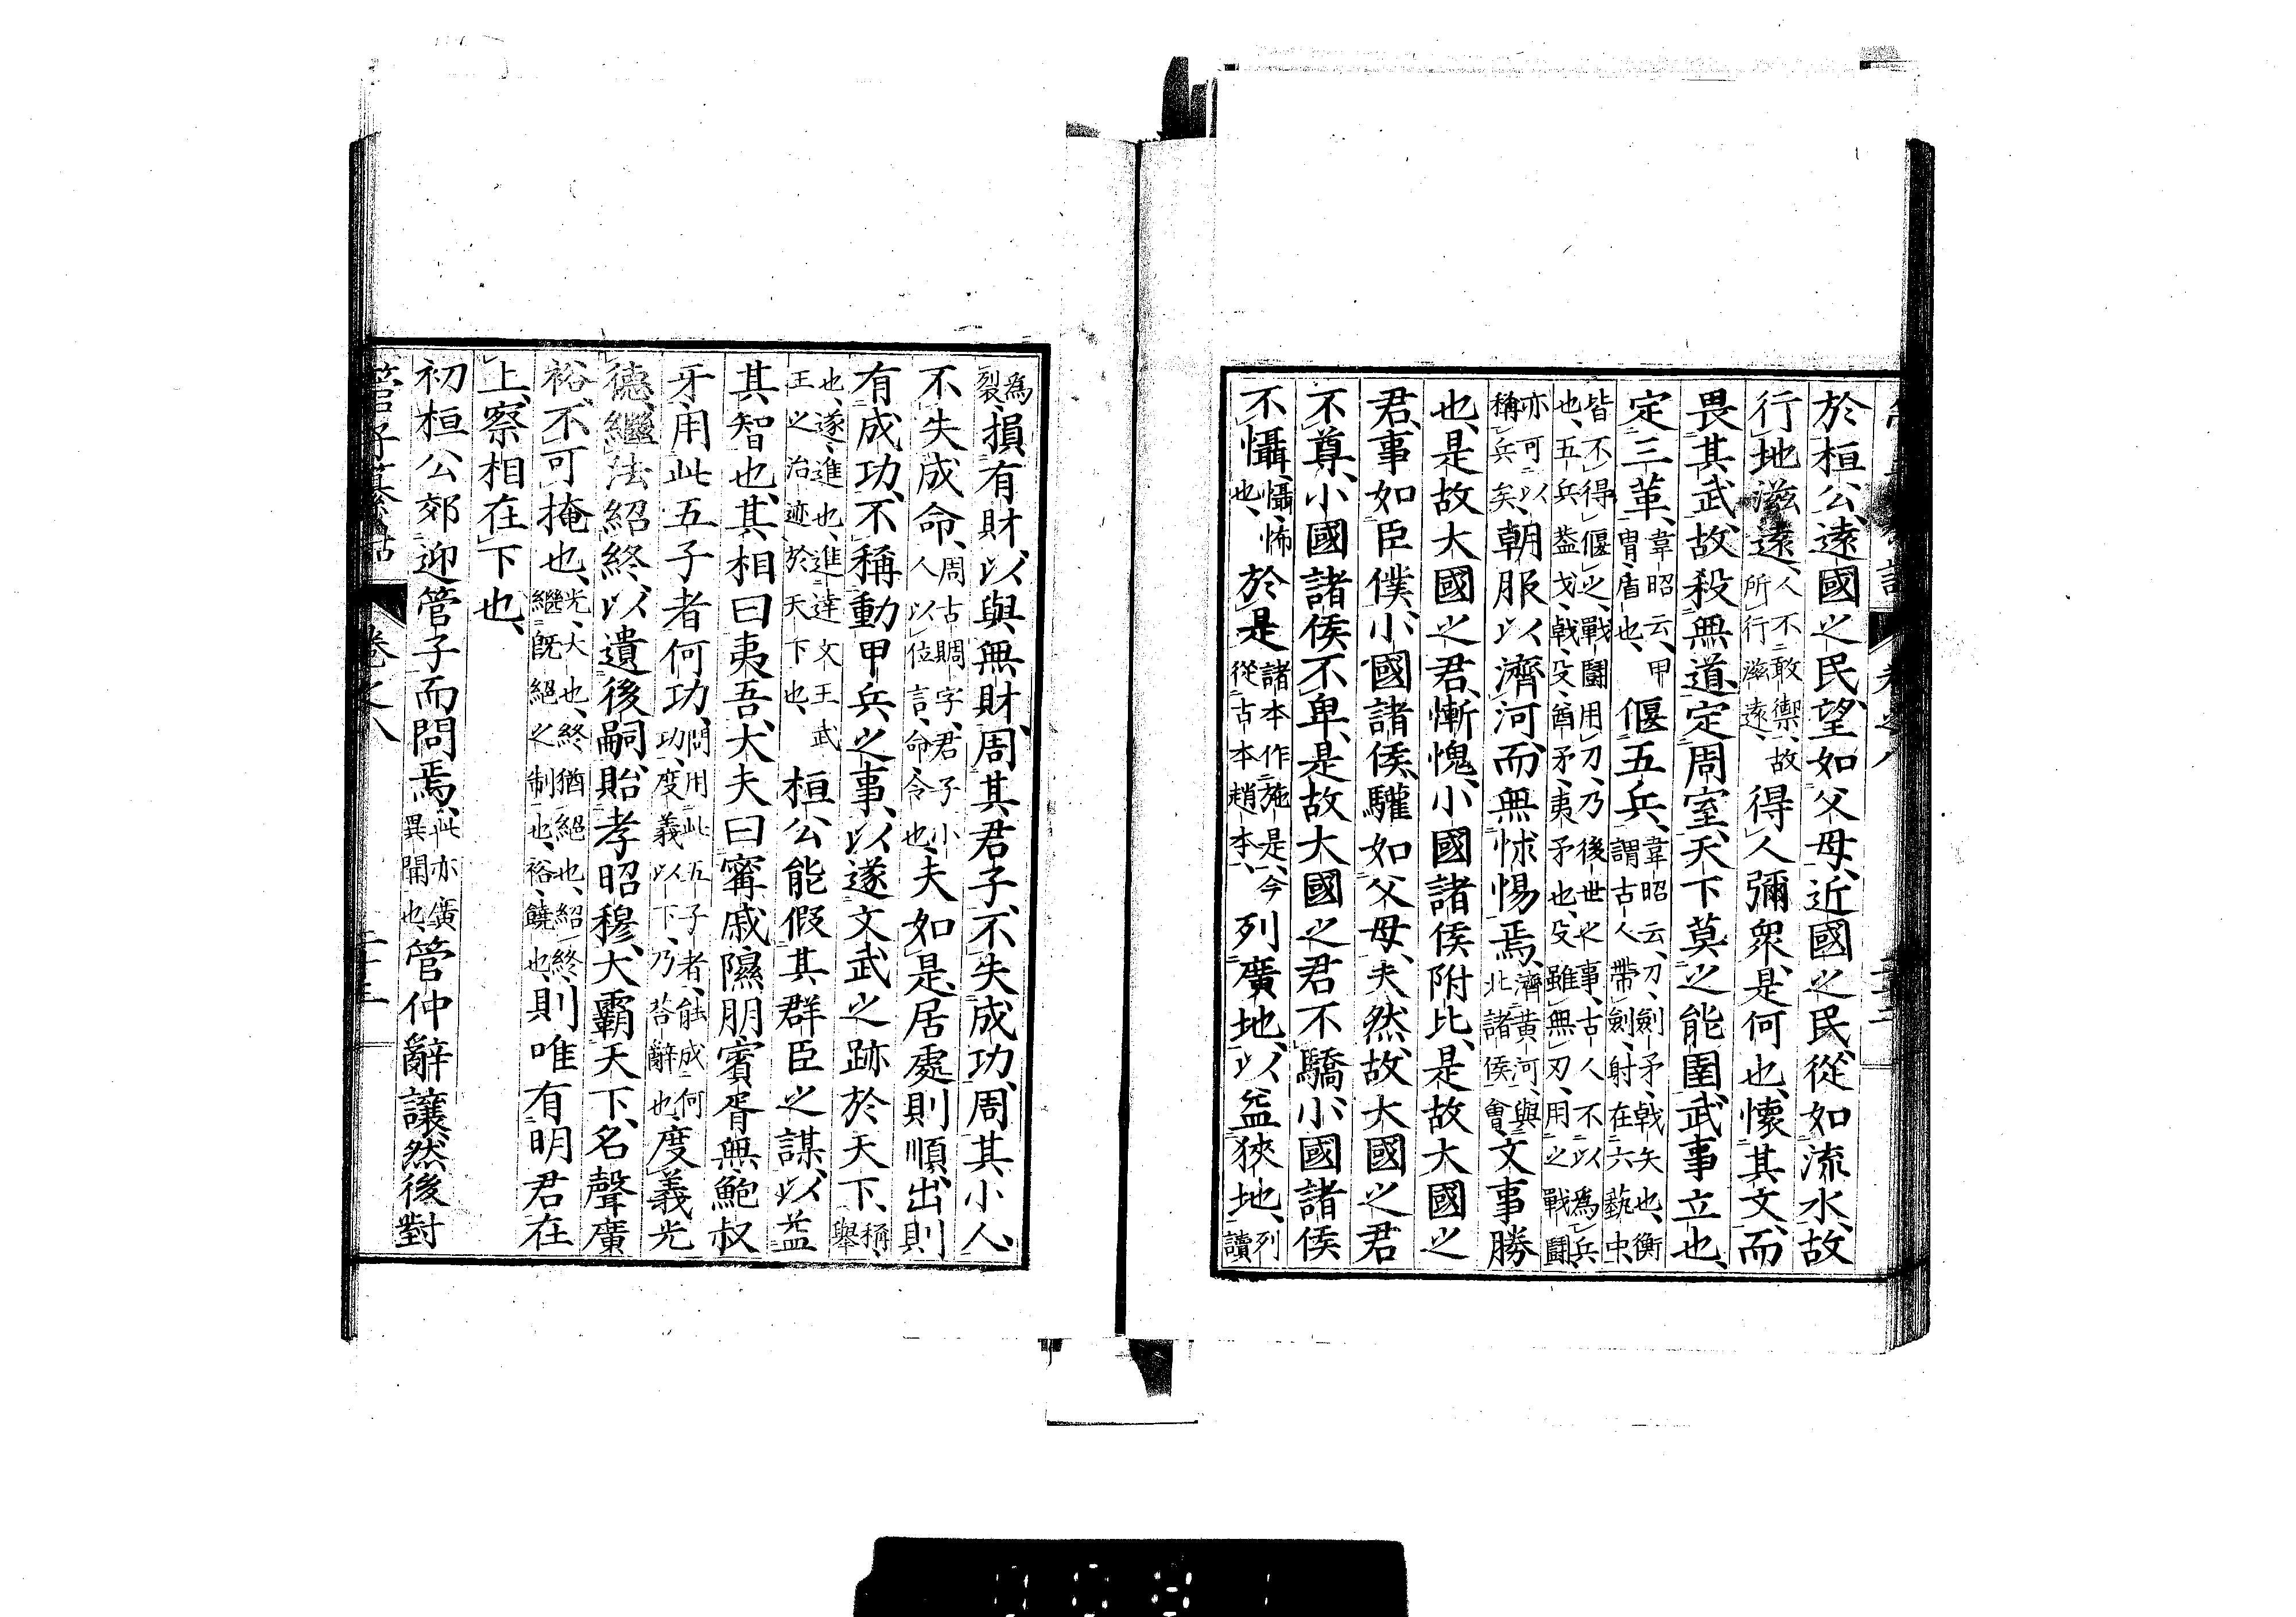 於桓公、遠國之民、望如父母、近國之民、從如流水、故
行地滋遠、人不敢禦、故所行滋遠、得人彌衆、是何也、懷其文、而
畏其武、故殺無道、定周室、天下莫之能圉、武事立也、
定三革、韋昭云、甲冑盾也、偃五兵、韋昭云、刀、劍、矛、戟、矢也、衡謂古人帶劍、射在六藝中、
皆不得偃之、戰鬪用刀、乃後世之事、古人不以爲兵、也、五兵葢戈、戟、殳、酋矛、夷矛也、殳雖無刃、用之戰鬪、
亦可以稱兵矣、朝服以濟河、而無怵惕焉、濟黄河、與北諸侯會、文事勝
也、是故大國之君、慚愧、小國諸侯附比、是故大國之
君、事如臣僕、小國諸侯、驩如父母、夫然、故大國之君
不尊、小國諸侯不卑、是故大國之君不驕、小國諸侯
不懾、懾、怖也、於是諸本作施是、今從古本趙本、列廣地、以益狹地、列讀
爲裂、損有財、以與無財、周其君子、不失成功、周其小人、
不失成命、周古賙字、君子小人以位言、命、令也、夫如是、居處則順、出則
有成功、不稱動甲兵之事、以遂文武之跡於天下、稱、舉
也、遂、進也、進達文王武王之治迹於天下也、桓公能假其群臣之謀、以益
其智也、其相曰夷吾、大夫曰甯戚隰朋賓胥無鮑叔
牙、用此五子者何功、問用此五子者、能成何功、度義以下、乃荅辭也、度義光
德、繼法紹終、以遺後嗣、貽孝昭穆、大霸天下、名聲廣
裕、不可掩也、光、大也、終猶絕也、紹終、繼旣絕之制也、裕、饒也、則唯有明君在
上、察相在下也、
初桓公郊迎管子而問焉、此亦廣異聞也、管仲辭讓、然後對
卷之八